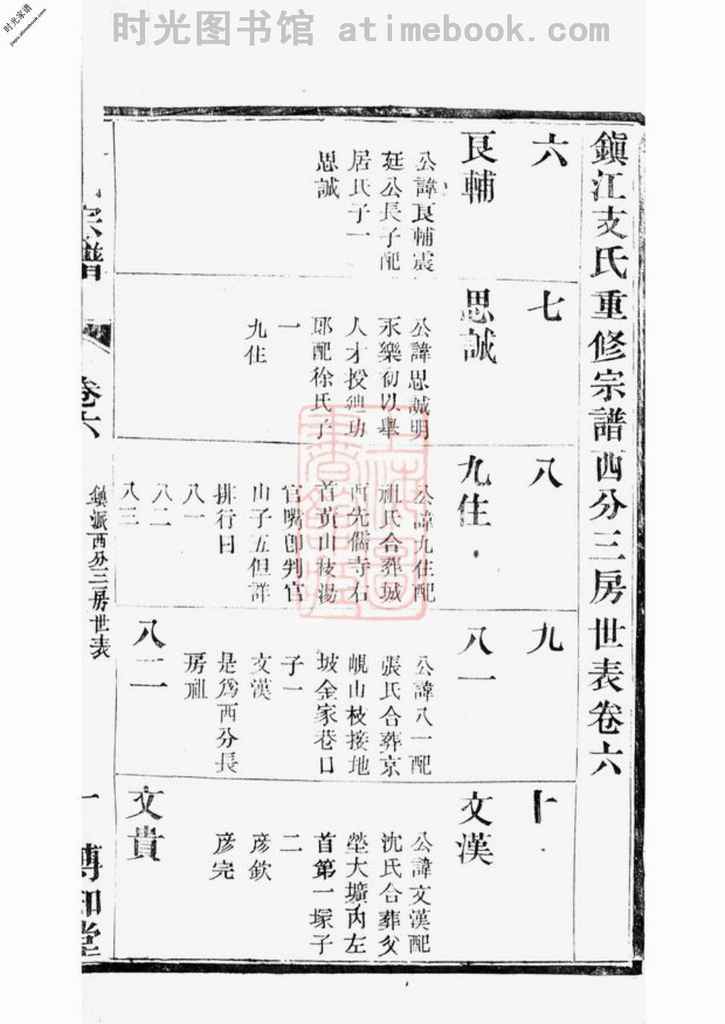 时光图书馆 atimebook.com
时光家谱
鎮江支氏重修宗譜西分三房世表卷六
六
良輔
公諱良輔震
廷公長子配
居氏子一
思誠
七
思誠
公諱思誠明
永樂初以舉
人才授廸功
郎配徐氏子
一
九住
八
九住
公諱九住配
祖氏合葬城
西先儒寺右
首黃山枝湯
官嘴卽判官
山子五但詳
排行曰
八一
八二
八三
九
八一
公諱八一配
張氏合葬京
峴山枝接地
坡金家巷口
子一
文漢
是爲西分長
房祖
八二
十
文漢
公諱文漢配
沈氏合葬父
塋大壙內左
首第一塚子
二
彦欽
彦完
文貴
宗譜
卷六
鎮派西分三房世表
一